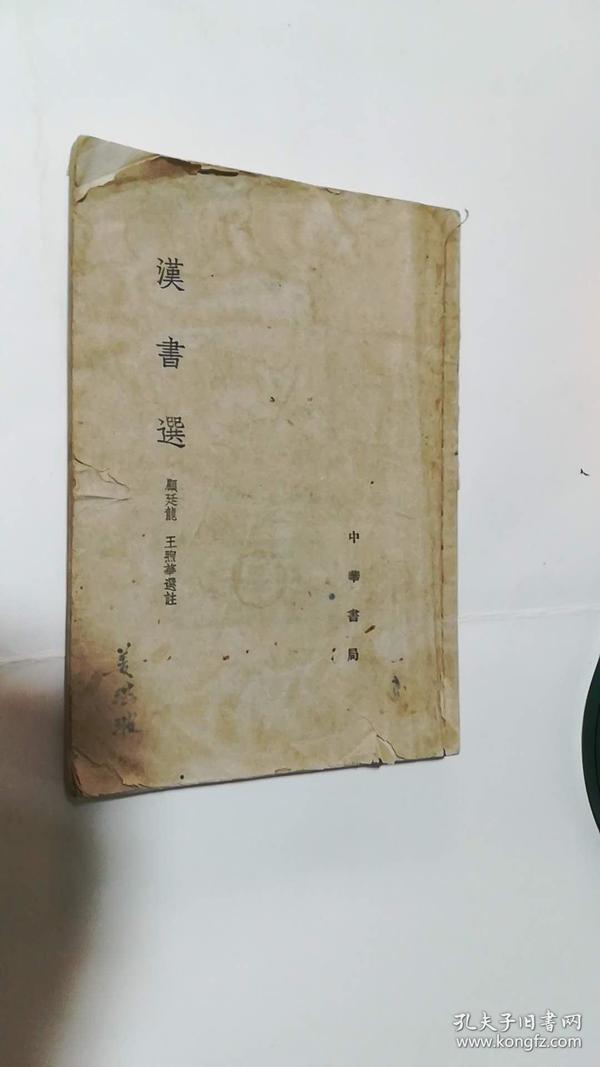 漢書選
顧廷龍 王煦華選註
中華書局
孔夫子旧书网
www.kongfz.com